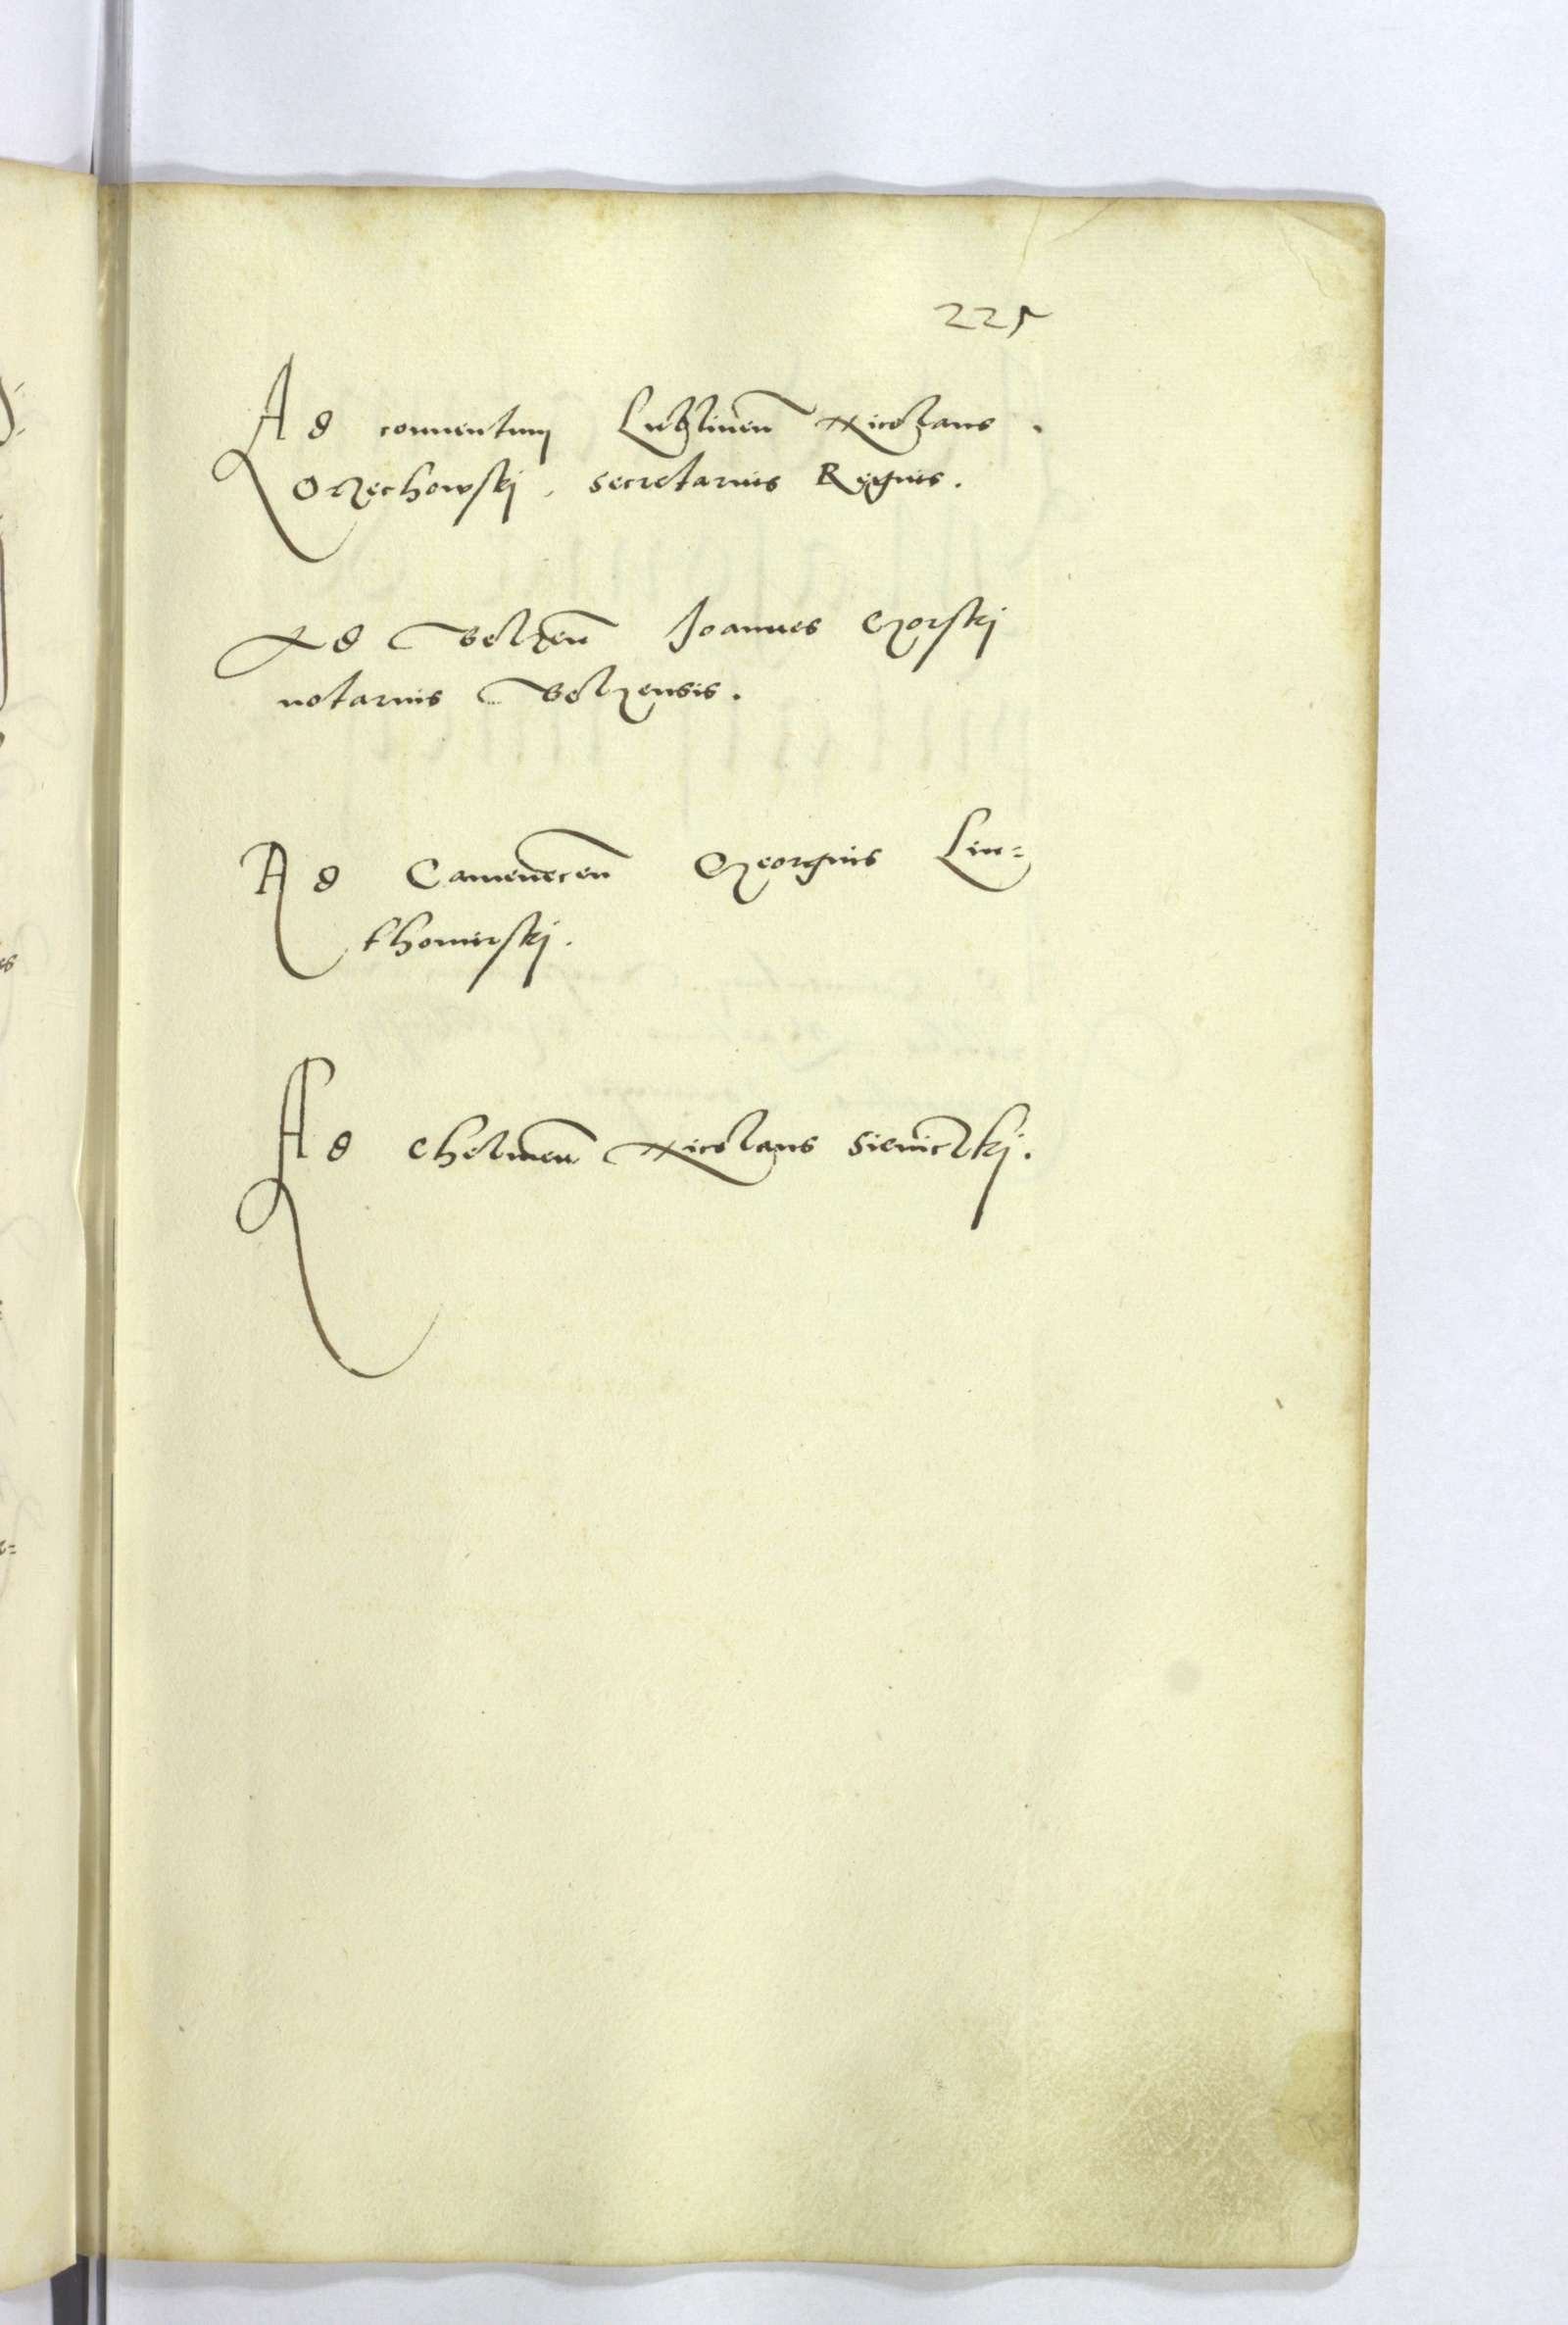 225
Ad conuentum Lublinen Nicolaus.
Orzechowskj, secretarius Regius.
Ad Belzen Joannes Gorskj
notarius Belzensis.
Ad Camenecen Georgius Lin=
thomirskj.
Ad Chelmen Nicolaus Sieniczkj.